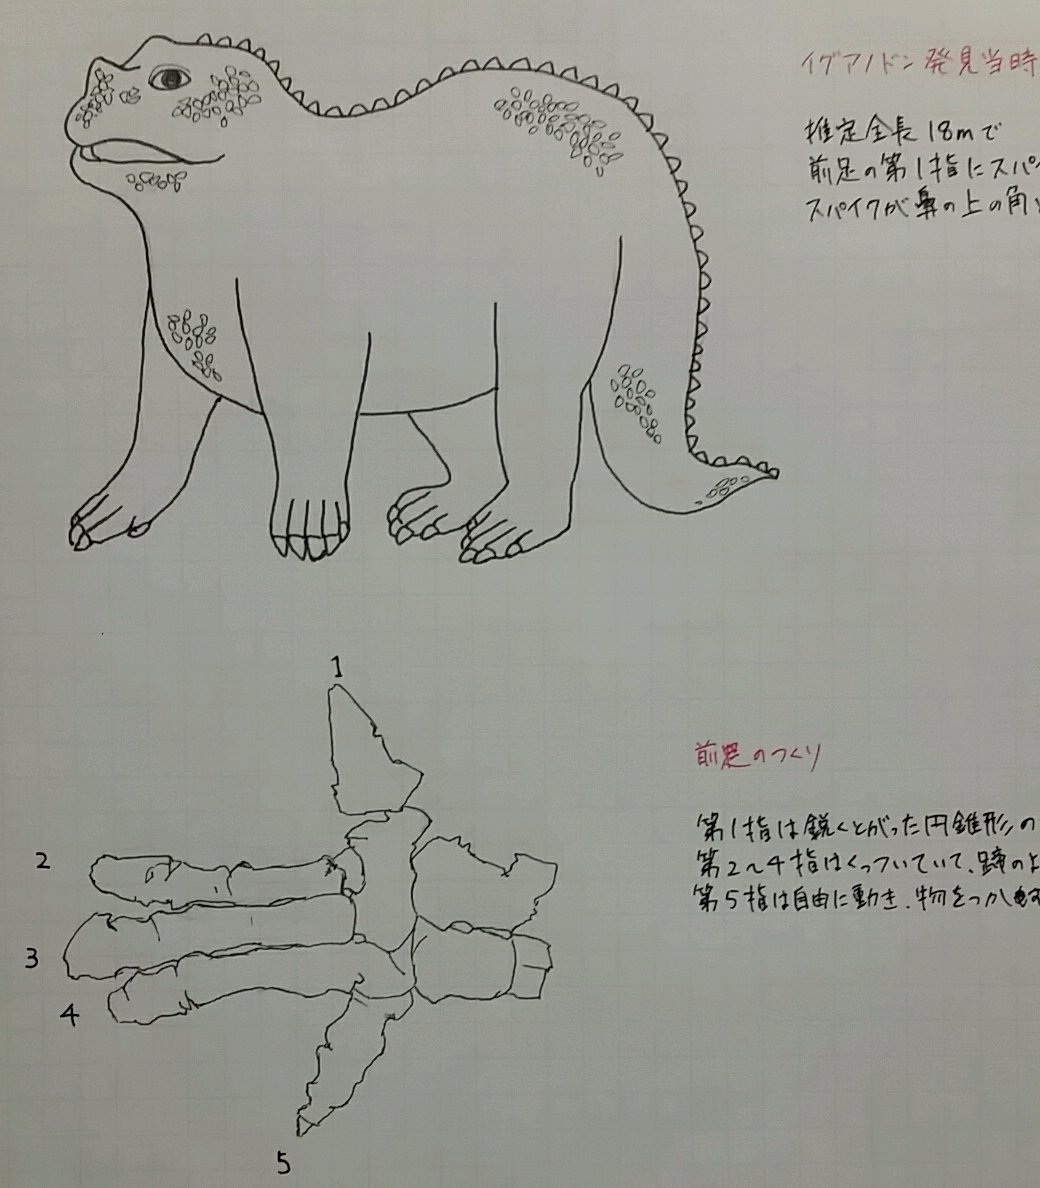 イグアノドン発見当時
推定全長18mで
前足の第1指にスパイ
スパイクが鼻の上の角と
1
前足のつくり
第1指は鋭くとがった円錐形の
2
第2〜4指はくっついていて、蹄のよ
第5指は自由に動き、物をつかめ
3
4
5